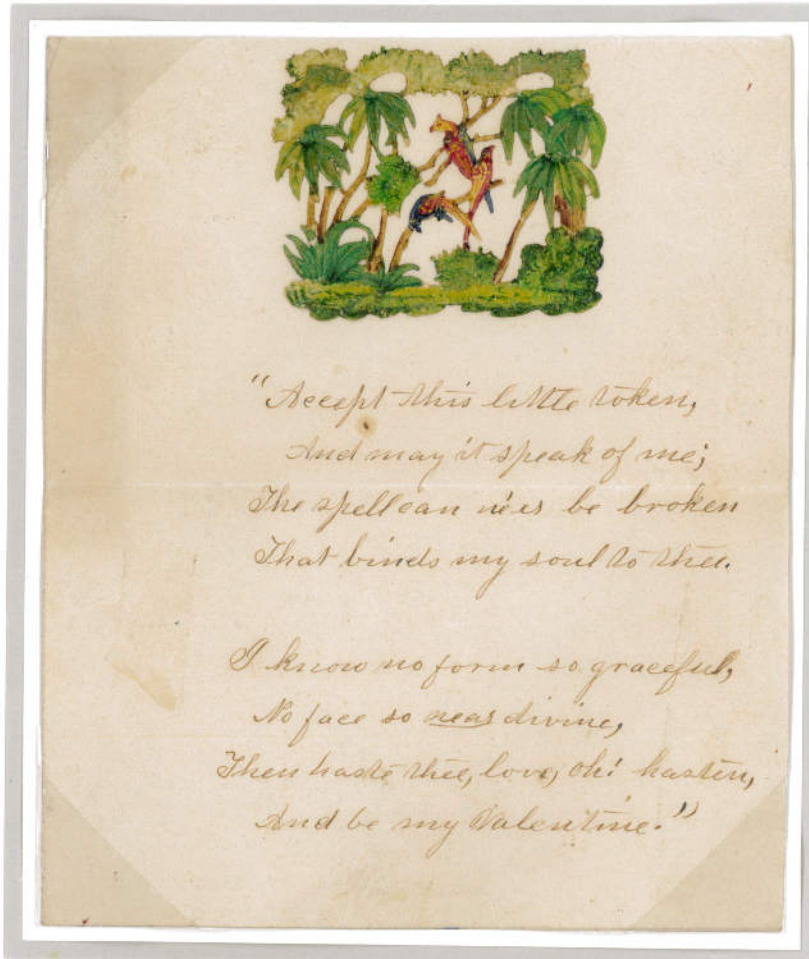 "Accept this little token,
And may it speak of me;
The spell can ne'er be broken
That binds my soul to thee.
I know no form so graceful,
No face so near divine,
Then haste thee, love, oh! hasten,
And be my Valentine."